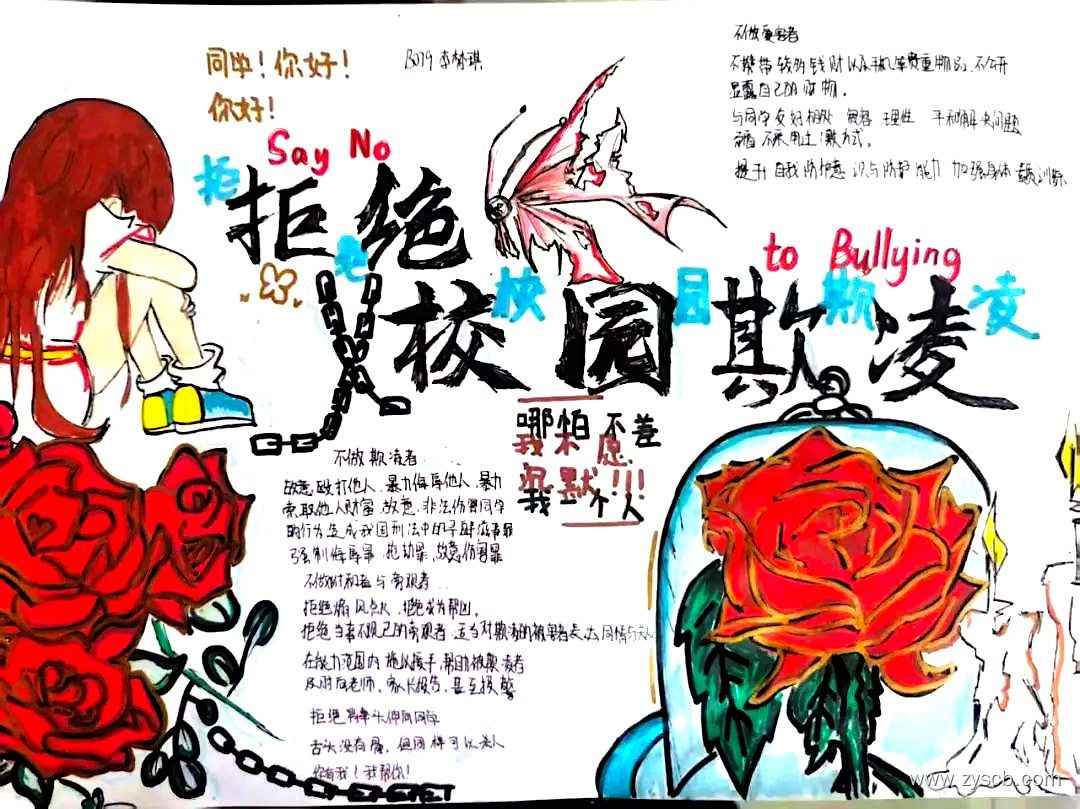 同学！你好！
你好！
B019 李梦琪
不做受害者
不携带较多的钱财以及手机等贵重物品，不公开
显露自己的财物。
与同学友好相处 宽容 理性 平和解决问题
不采用土 方式。
提升自我防护意识与防护能力 加强身体素质训练
Say No
拒绝
拒绝
to Bullying
校园欺凌
校园欺凌
哪怕不差
我不愿
沉默!!!
我一个人
不做欺凌者......
故意殴打他人、暴力侮辱他人、暴力
索取他人财富，故意、非法伤害同学
的行为造成我国刑法中的寻衅滋事罪
强制侮辱罪 抢劫罪，故意伤害罪
不做附和者与旁观者...
拒绝煽风点火，拒绝成为帮凶。
拒绝当事不关己的旁观者，适当对欺凌的被害者表达同情与关心
在能力范围内施以援手，帮助被欺凌者
及时向老师、家长报告，甚至报警
拒绝 同学
舌头没有骨，但同样可以杀人
你有我！我帮你！
www.zyscb.com